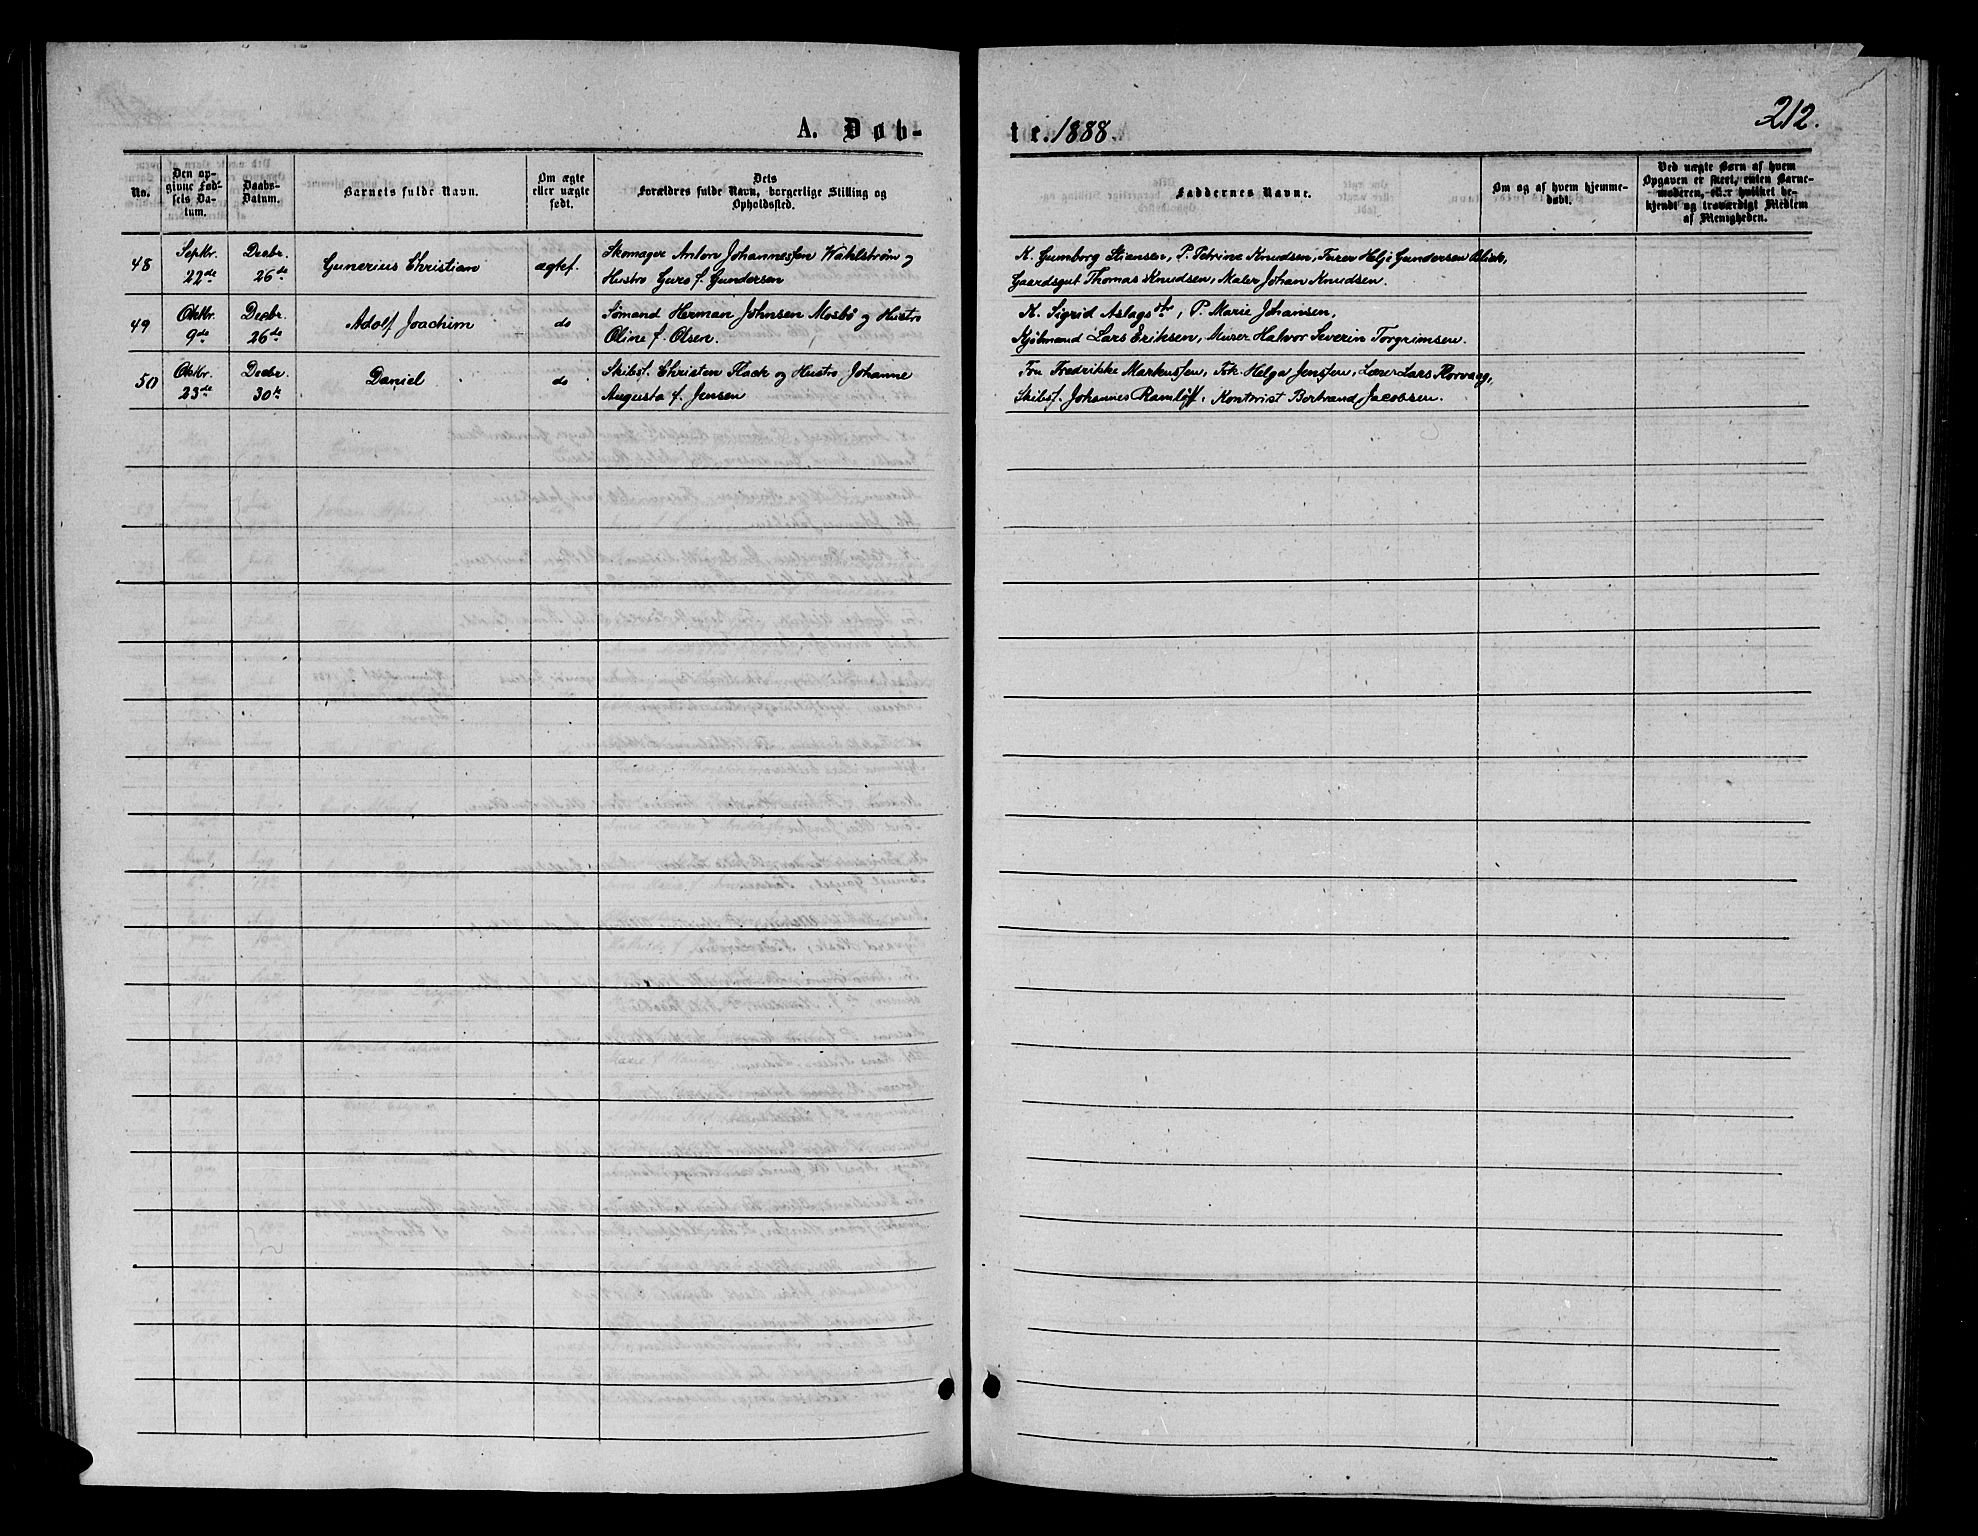 212.
A. Døb-
te. 1888.
No.
Den op-
givne Fød-
sels Da-
tum.
Daabs-
Datum.
Barnets fulde Navn.
Om ægte
eller uægte
født.
Dets
Forældres fulde Navn, borgerlige Stilling og
Opholdssted.
Faddernes Navne.
Om og af hvem hjemme-
døbt.
Ved uægte Børn af hvem
Opgaven er skeet, enten Barne-
moderen, eller hvilket be-
kjendt og troværdigt Medlem
af Menigheden.
48 Septbr. Decbr. Gunerius Christian ægtef. Skomager Anton Johannessen Wahlstrøm og K. Gumborg Stiansen, P. Petrine Knudsen, Furer Helje Gundersen Blick,
22de 26de Hustro Guro f. Gundersen Gaardsgut Thomas Knudsen, Maler Johan Knudsen.
49 Oktbr. Decbr. Adolf Joachim do Sømand Herman Johnsen Mosbø og Hustro K. Sigrid Aslagsdtr, P. Marie Johansen,
9de 26de Oline f. Olsen. Kjøbmand Lars Eriksen, Murer Halvor Severin Torgrimsen.
50 Oktbr. Decbr. Daniel do Skibsf. Christen Flack og Hustro Johanne Fru Fredrikke Markussen, Frk. Helga Jenssen, Lærer Lars Rorvaag,
23de 30te Augusta f. Jensen Skibsf. Johannes Ramløff, Kontorist Bertrand Jacobsen.